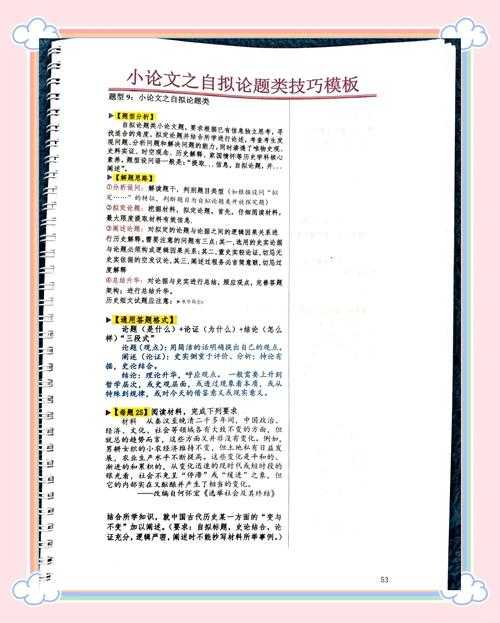 小论文之自拟论题类技巧模板
题型9：小论文之自拟论题类
▶【题型分析】
自拟论题类小论文题，要求根据已有信息独立思考，寻
找适合的角度，拟定论题并结合所学进行论述，考查考生发
现问题、分析问题和解决问题的能力，同时渗透了唯物史观、
史料实证、时空观念、历史解释、家国情怀等历史学科核心
素养，题型设问语一般是：“提取...信息，自拟论题，并...
阐述”。
▶【解题思路】
①分析设问：解读题干，判别题目类型（如根据设问“拟
定......”的特征，判别题目为自拟论题表开放探究题）
②拟定论题：把握材料，拟定论题，首先，仔细阅读材料，
最大限度提取材料有效信息，
③阐述论题：对拟定的论题与论据之间的逻辑因果关系进
行历史解释，需要注意的问题有三点：其一，选用的史实论据
与论题必须构成逻辑因果关系；其二，重史实轻论证，切勿无
史实依据的空发议论，其三，阐述过程务必言简意赅，切勿过
度解释
④总结升华：对论据与史实进行总结，照应观点，完善答题
架构；进行总结升华。
历史短文试题应注意：
▶【通用答题格式】
论题（是什么）+论证（为什么）+结论（怎么
样）“三段式”
论题（观点）：用简洁的话明确提出自己的观点。
阐述（论证）：史实侧重于评价、分析；持论有
据，史论结合。
结论：理论升华，呼应观点。一般需要上升到
哲学层次，或史观层面，或透过现象看本质，或从
特殊到规律，或对今天的借鉴意义或现实意义。
▶【母题25】阅读材料，完成下列要求
材料 从秦汉至晚清二千多年间，中国政治、
经济、文化、社会等领域各有大致不变的方面，但
就总的趋势而言，这些方面又并非没有变化。例如，
男耕女织的小农经济维持不变，但土地私有日益发
展，农业生产水平不断提高。这些变化是中和的、
渐进的和累积的，从变化迅速的现时代或短时段的
眼光看，社会不免呈“停滞”或“缓进”之象，但
它的内部实在又酝酿并产生了相当的变化。
——改编自何怀宏《选举社会及其终结》
结合所学知识，就中国古代历史某一方面的“变与
不变”加以阐述。（要求：自拟标题，史论结合、论
证充分，逻辑严密，阐述时不能抄写材料所举事例。）
53